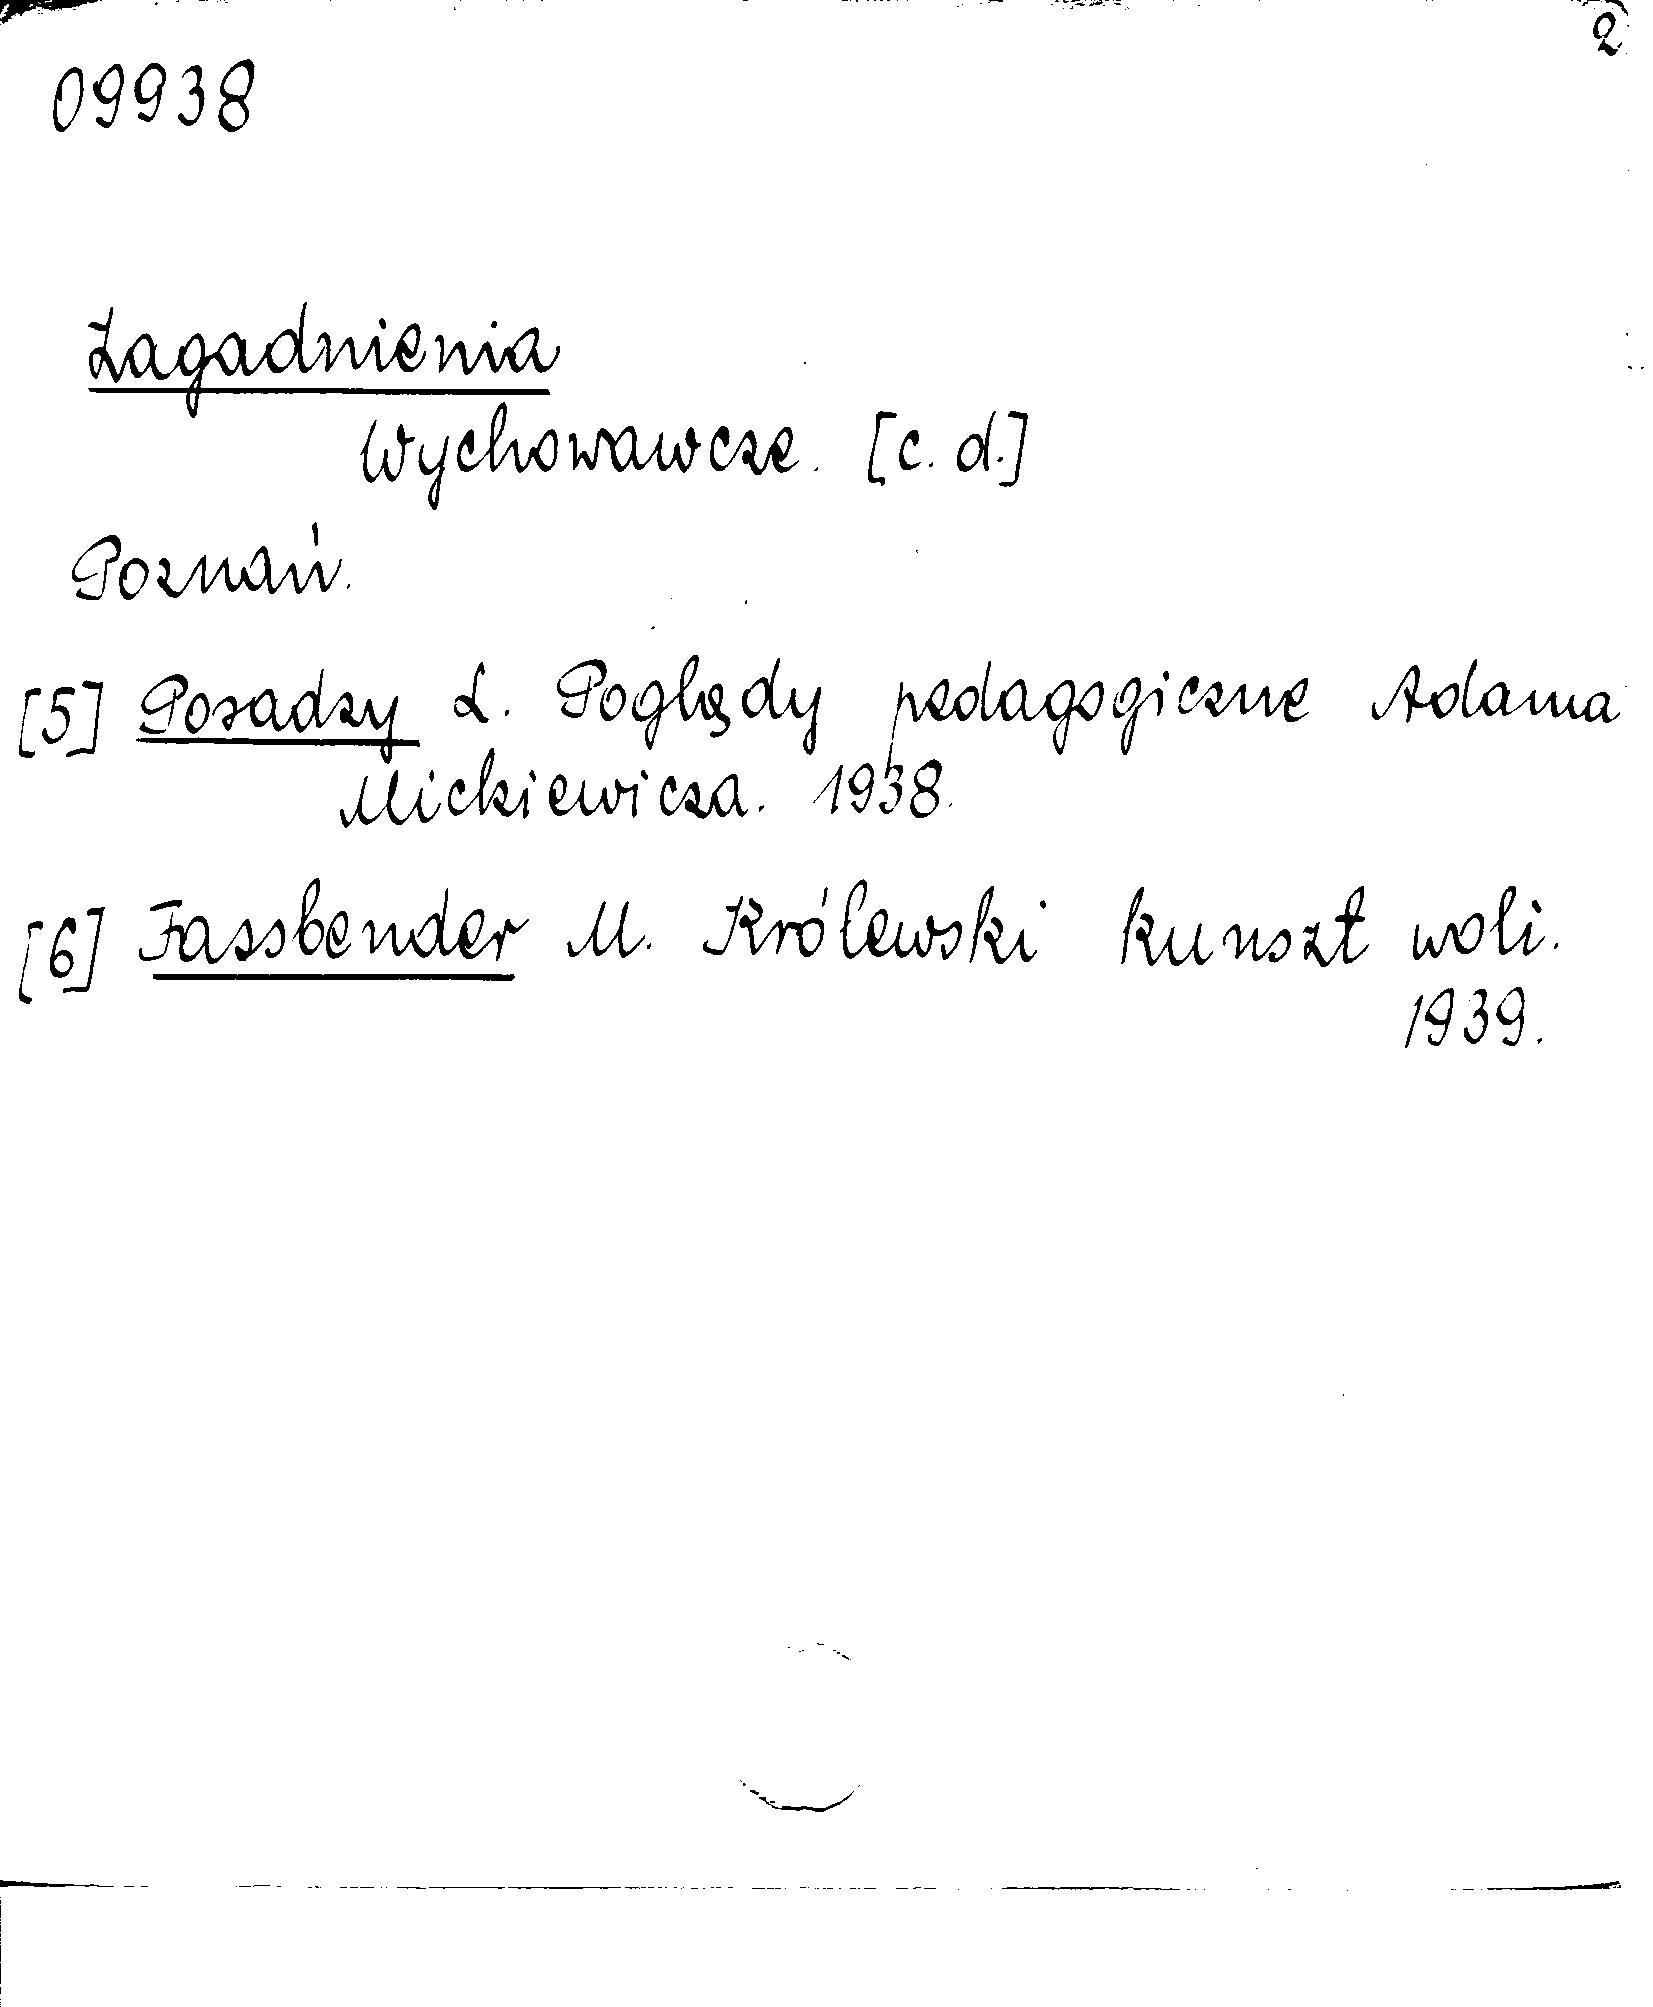 2
09938
Zagadnienia
Wychowawcze. [c. d.]
Poznań.
[5] Posadzy L. Poglądy pedagogiczne Adama
Mickiewicza. 1938.
[6] Fassbender M. Królewski kunszt woli.
1939.